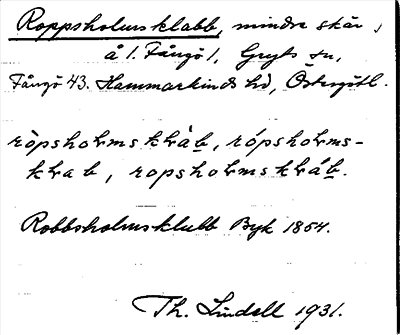 Roppsholmsklabb, mindre skär,
å 1. Fångö 1, Gryts sn,
Fångö 43. Hammarkinds hd, Östergötl.
ròpsholmsklàb, rópsholms-
klab, ropsholmskláb.
Robbsholmsklubb Byk 1854.
Th. Lindell 1931.